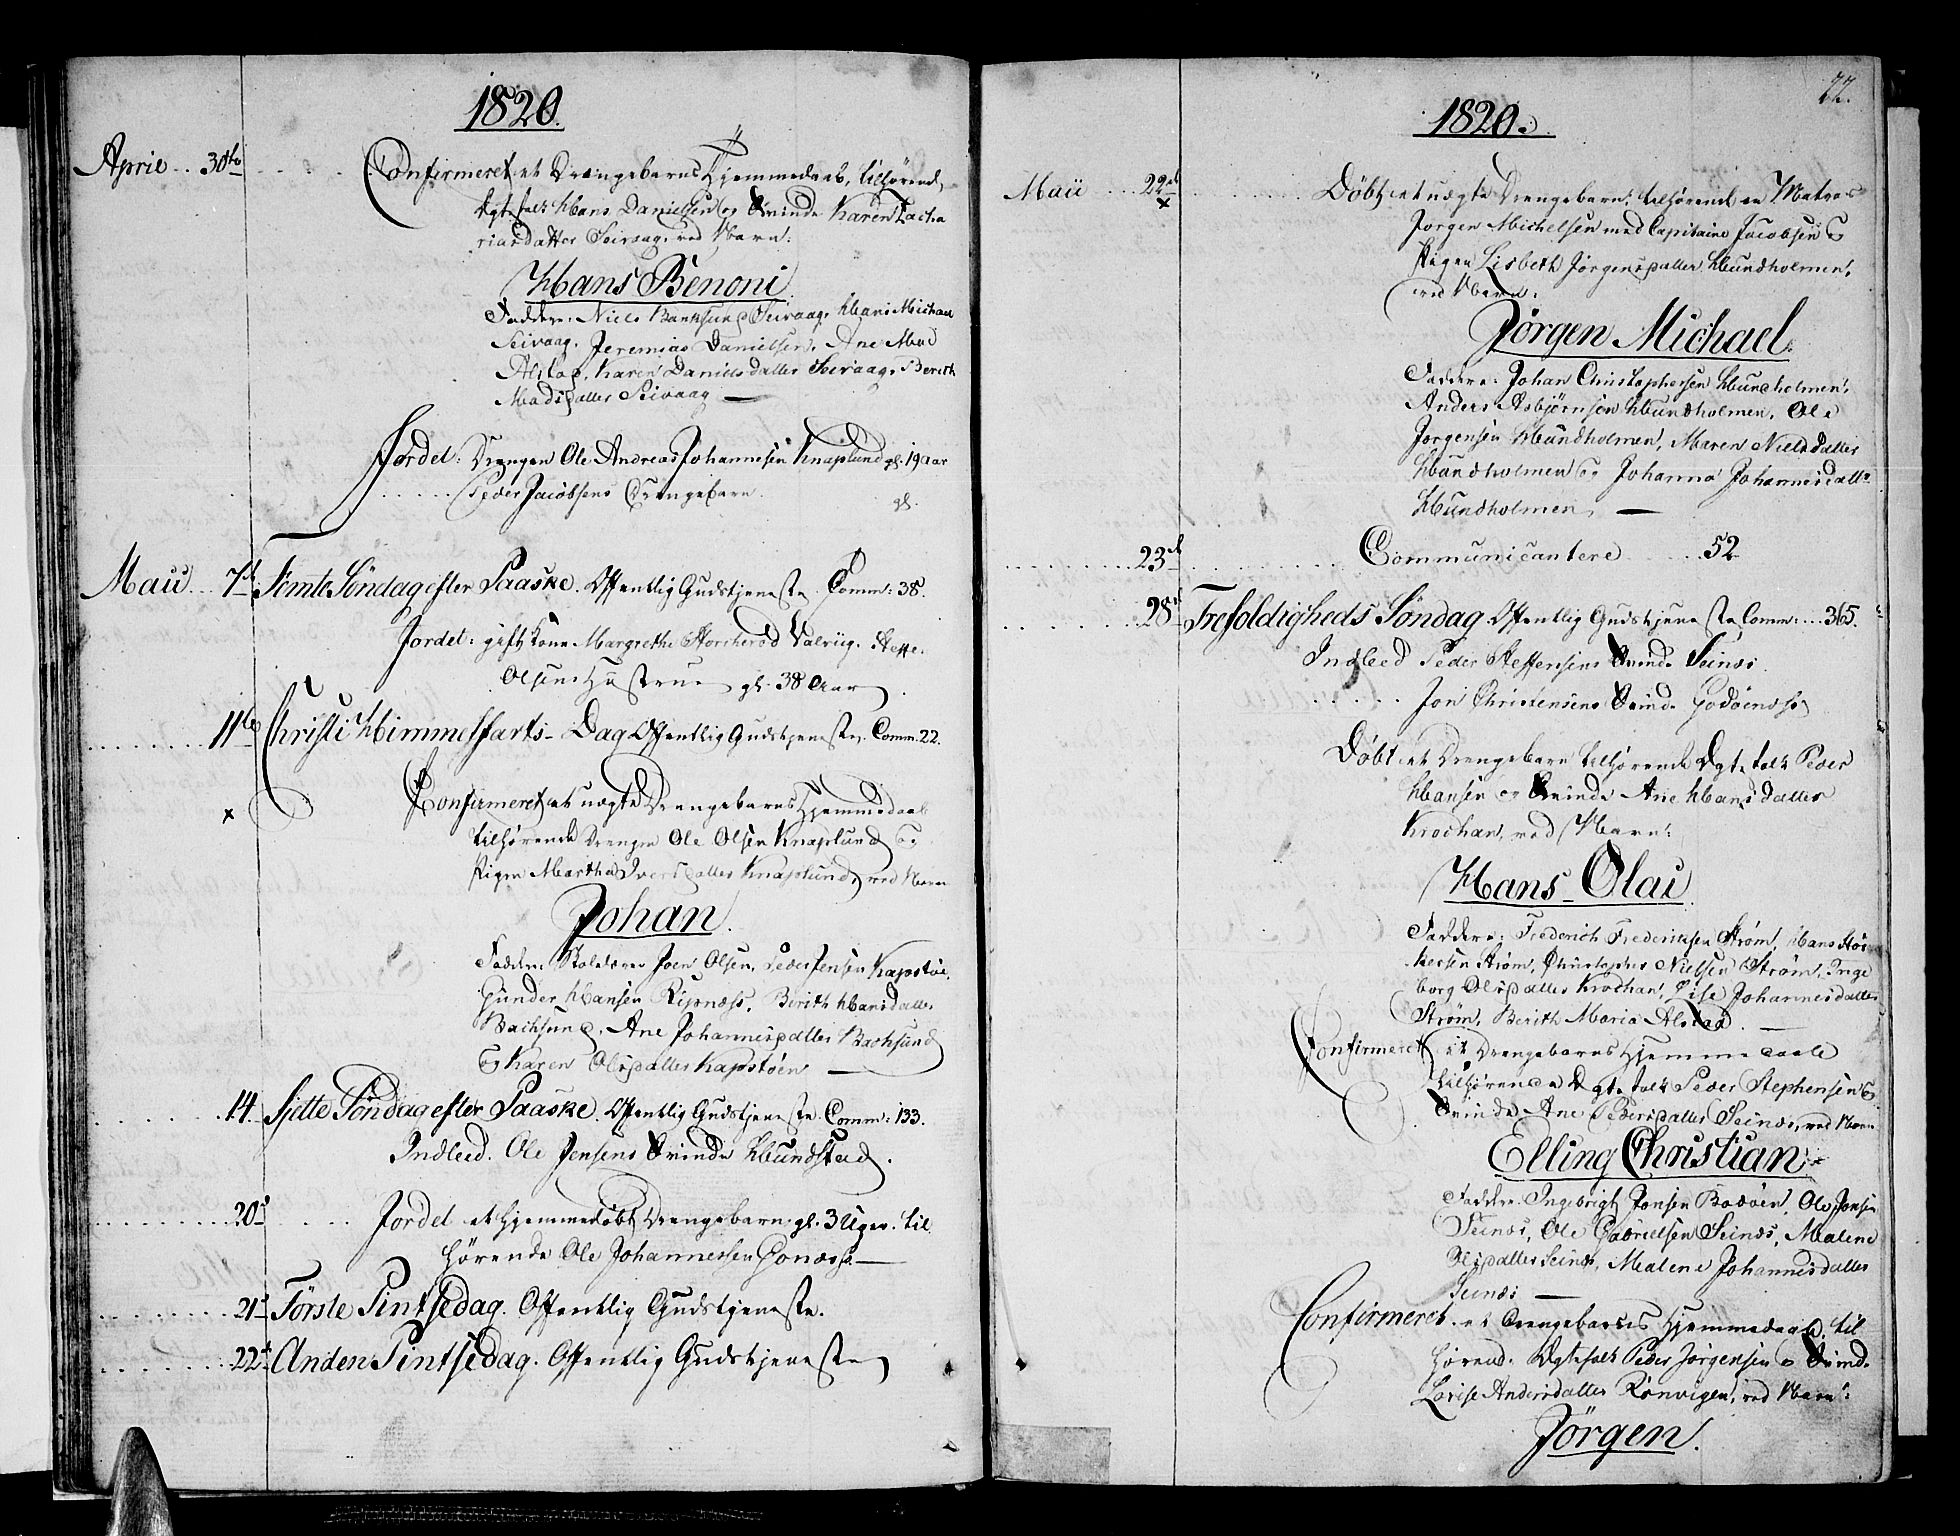 1820.
April .. 30te
Confirmeret et Drengebarns Hjemmedaab, tilhørend.
Ægtefolk Hans Danielsen og Qvinde Karen Zacha
riasdatter Seivaag, ved Navn:
Hans Benoni
Faddere: Niels Seivaag, Hans Michael
Seivaag, Jeremias Danielsen, Ane Mad
Karen Danielsdatter Seivaag, Berith
Madsdatter Seivaag —
Jordet: Drengen Ole Andreas Johannesen Knaplund gl. 19 aar
. . . . . Peder Jacobsens Drengebarn. gl.
Maii ... 7d. Femte Søndag efter Paaske. Offentlig Gudstjeneste. Comm: 38.
Jordet: gift Kone Margrethe Valvüg.
Olsens Hustrue gl. 38 Aar
11te Christi Himmelfarts-Dag Offentlig Gudstjeneste. Comm. 22.
x Confirmeret et uægte Drengebarns Hjemmedaab
tilhørende Drengen Ole Olsen Knaplund og
Pigen Martha Iversdatter Knaplund, ved Navn
Johan.
Faddere: Joen Olsen, Peder Jensen Kapstøe,
Gunder Hansen Ripnæss, Berith Hansdatter
Bachsund, Ane Johannesdatter Bachsund
og Karen Olsdatter Kapstøen —
14. Sjette Søndag efter Paaske. Offentlig Gudstjeneste. Comm: 133.
Indleed. Ole Jensens Qvinde Hundstad.
20d. Jordet et hjemmedøbt Drengebarn gl. 3 Uger. til
hørende Ole Johannessen —
21d Første Pintsedag. Offentlig Gudstjeneste.
22d Anden Pintsedag. Offentlig Gudstjeneste
22.
1820.
Maii .... 22d
x
Døbt et uægte Drengebarn: tilhørende en Matros
Jørgen Michelsen med Capitaine Jacobsen og
Pigen Lisbeth Jørgensdatter Hundholmen,
ved Navn:
Jørgen Michael.
Faddere: Johan Christophersen Hundholmen,
Anders Asbjørnsen Hundholmen, Ole
Jørgensen Hundholmen, Maren Nielsdatter
Hundholmen og Johanna Johannesdatter
Hundholmen, —
23d Communicantere ..... 52
28d Trefoldigheds Søndag Offentlig Gudstjeneste Comm: ... 365.
Indleed Peder Steffensens Qvinde Seinæs
. . . . . Jon Christensens Qvinde Godøenss
Døbt et Drengebarn tilhørende Ægtefolk Peder
Hansen og Qvinde Ane Hansdatter
Krochan, ved Navn:
Hans-Olai
Faddere: Frederich Frederiksen Strøm, Hans
Strøm, Christopher Nielsen Strøm, Inge
borg Olsdatter Krochan, Else Johannesdatter
Strøm, Berith Maria Alstad. —
Confirmeret et Drengebarns Hjemmedaab
tilhørende Ægtefolk Peder Stephensen og
Qvinde Ane Pedersdatter Seinæs, ved Navn
Elling Christian
Faddere: Ingebrigt Jonsen Bodøen, Ole Jonsen
Seinæs, Ole Gabrielsen Seinæs, Malene
Olsdatter Seinæs, Malene Johannesdatter
Seinæs —
Confirmeret et Drengebarns Hjemmedaab, til
hørend. Ægtefolk Peder Jørgensen og Qvinde
Lovise Andersdatter Rønvigen, ved Navn:
Jørgen.